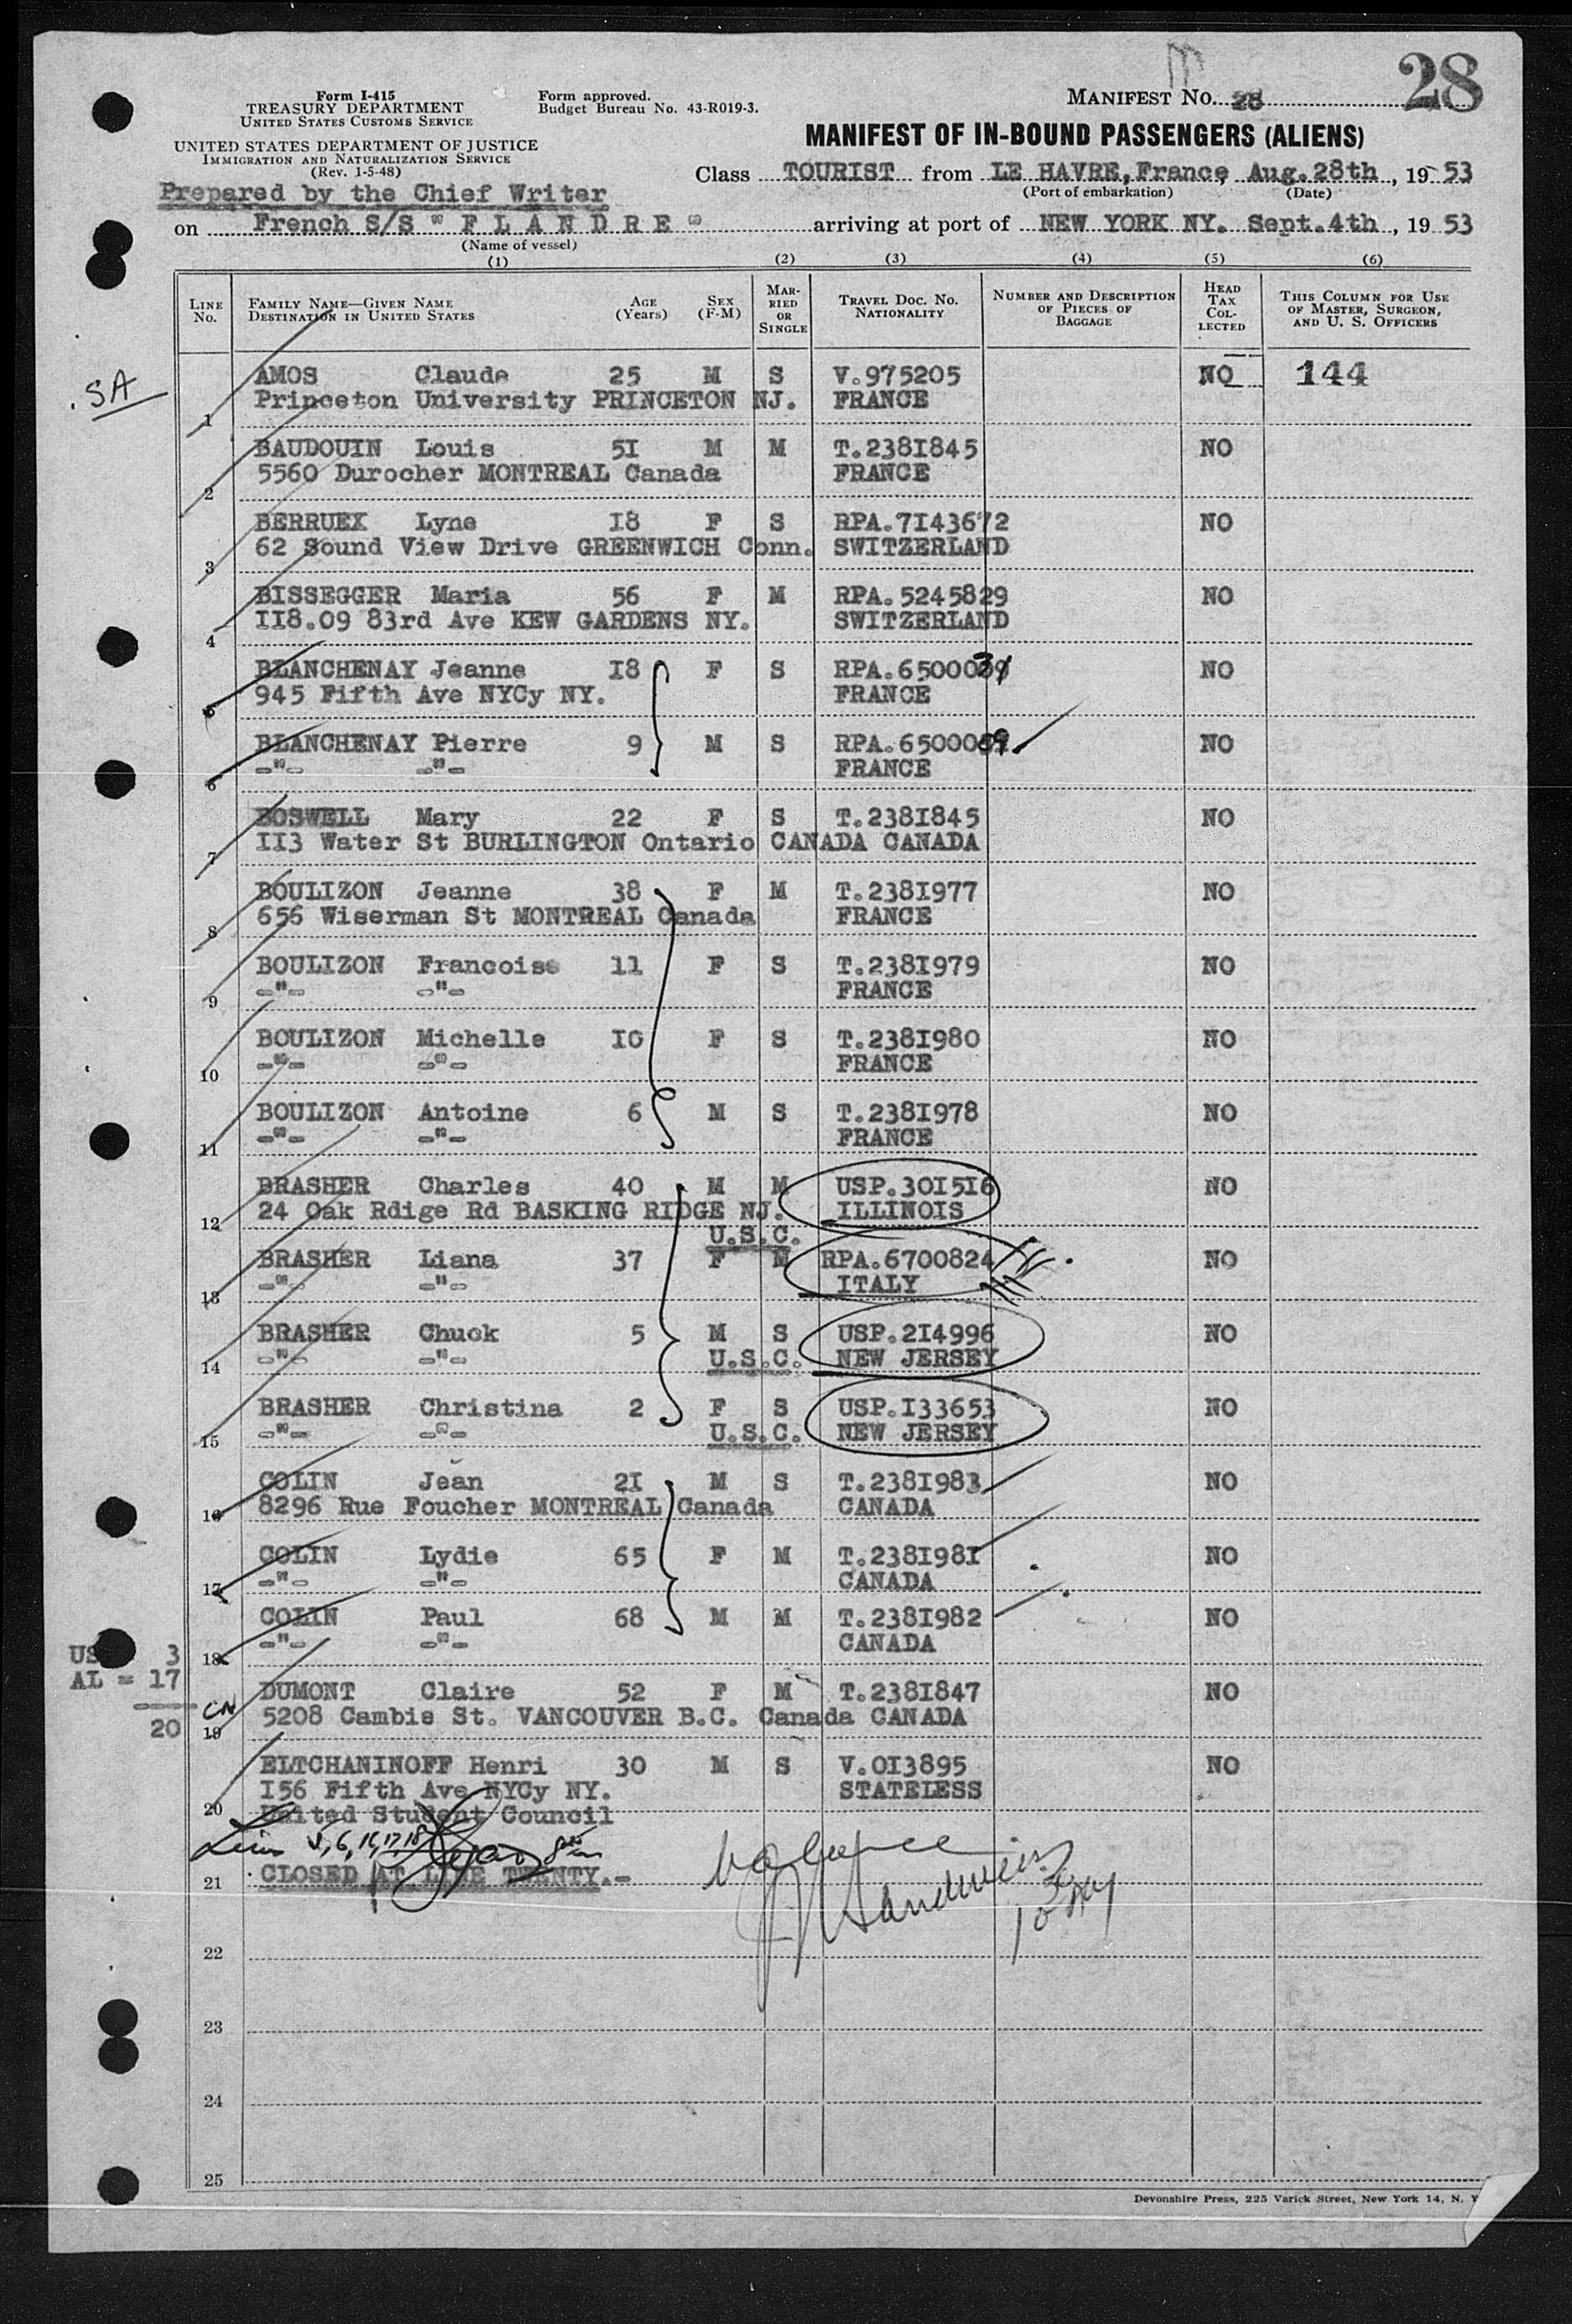 28
Form I-415
TREASURY DEPARTMENT
UNITED STATES CUSTOMS SERVICE
Form approved.
Budget Bureau No. 43-R019-3.
MANIFEST NO. 28
UNITED STATES DEPARTMENT OF JUSTICE
IMMIGRATION AND NATURALIZATION SERVICE
(Rev. 1-5-48)
MANIFEST OF IN-BOUND PASSENGERS (ALIENS)
Prepared by the Chief Writer
Class TOURIST from LE HAVRE, France, Aug. 28th, 1953
(Port of embarkation) (Date)
on French S/S " F L A N D R E " arriving at port of NEW YORK NY. Sept. 4th, 1953
(Name of vessel)
(1) (2) (3) (4) (5) (6)
LINE No. FAMILY NAME—GIVEN NAME DESTINATION IN UNITED STATES AGE (Years) SEX (F-M) MARRIED OR SINGLE TRAVEL DOC. NO. NATIONALITY NUMBER AND DESCRIPTION OF PIECES OF BAGGAGE HEAD TAX COLLECTED THIS COLUMN FOR USE OF MASTER, SURGEON, AND U. S. OFFICERS
SA
AMOS Claude 25 M S V.975205 NO 144
1 Princeton University PRINCETON NJ. FRANCE
BAUDOUIN Louis 5I M M T.238I845 NO
2 5560 Durocher MONTREAL Canada FRANCE
BERRUEX Lyne I8 F S RPA.7I43672 NO
3 62 Sound View Drive GREENWICH Conn. SWITZERLAND
BISSEGGER Maria 56 F M RPA.5245829 NO
4 II8.09 83rd Ave KEW GARDENS NY. SWITZERLAND
BLANCHENAY Jeanne I8 F S RPA.6500031 NO
5 945 Fifth Ave NYCy NY. FRANCE
BLANCHENAY Pierre 9 M S RPA.650000 NO
6 -"- -"- FRANCE
BOSWELL Mary 22 F S T.238I845 NO
7 II3 Water St BURLINGTON Ontario CANADA CANADA
BOULIZON Jeanne 38 F M T.238I977 NO
8 656 Wiserman St MONTREAL Canada FRANCE
BOULIZON Francoise 11 F S T.238I979 NO
9 -"- -"- FRANCE
BOULIZON Michelle IO F S T.238I980 NO
10 -"- -"- FRANCE
BOULIZON Antoine 6 M S T.238I978 NO
11 -"- -"- FRANCE
BRASHER Charles 40 M M USP.30I5I6 NO
12 24 Oak Rdige Rd BASKING RIDGE NJ. ILLINOIS
U.S.C.
BRASHER Liana 37 F M RPA.6700824 NO
13 -"- -"- ITALY
BRASHER Chuck 5 M S USP.2I4996 NO
14 -"- -"- U.S.C. NEW JERSEY
BRASHER Christina 2 F S USP.I33653 NO
15 -"- -"- U.S.C. NEW JERSEY
COLIN Jean 2I M S T.238I983 NO
16 8296 Rue Foucher MONTREAL Canada CANADA
COLIN Lydie 65 F M T.238I98I NO
17 -"- -"- CANADA
COLIN Paul 68 M M T.238I982 NO
18 -"- -"- CANADA
US 3
AL = 17
20
CN
DUMONT Claire 52 F M T.238I847 NO
19 5208 Cambie St. VANCOUVER B.C. Canada CANADA
ELTCHANINOFF Henri 30 M S V.OI3895 NO
I56 Fifth Ave NYCy NY. STATELESS
20 United Student Council
21 CLOSED AT LINE TWENTY.-
22
23
24
25
Devonshire Press, 225 Varick Street, New York 14, N. Y